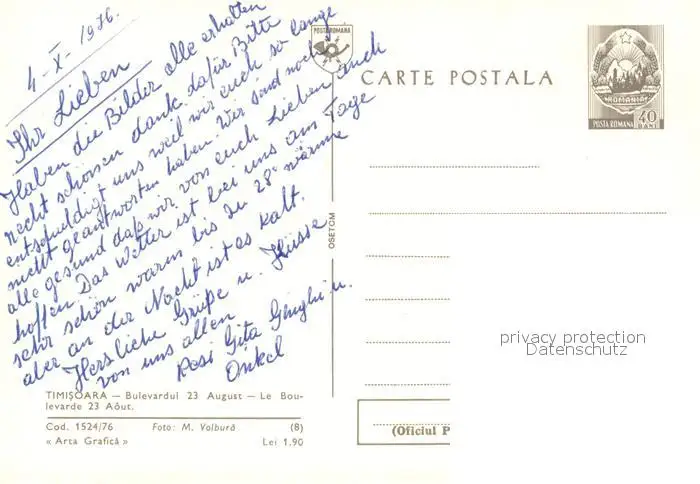 4-X-1976.
Ihr Lieben
Haben die Bilder alle erhalten
recht schönen dank dafür Bitte
entschuldigt uns weil wir euch so lange
nicht geantworten haben. Wir sind noch
alle gesund daß wir von euch Lieben auch
hoffen. Das Wetter ist bei uns am Tage
sehr schön warm bis zu 28° wärme
aber an der Nacht ist es kalt.
Herzliche Grüße u. Küsse
von uns allen
Rosi Gita Ginghi u.
Onkel
TIMIȘOARA — Bulevardul 23 August — Le Bou-
levarde 23 Aôut.
Cod. 1524/76 Foto: M. Volbură (8)
« Arta Grafică » Lei 1,90
OSETCM
POSTA ROMANA
CARTE POSTALA
ROMANIA
POSTA ROMANA 40 BANI
privacy protection
Datenschutz
(Oficiul P